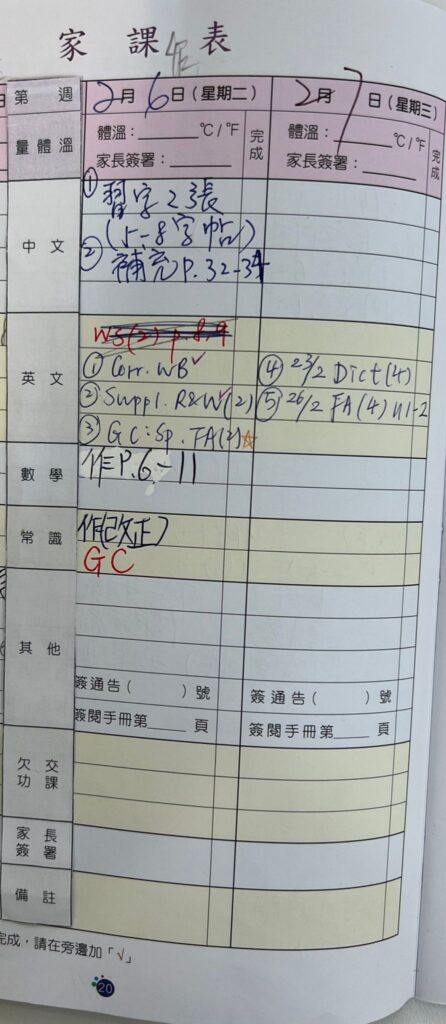 家 課 表
作
第 週
2月6日(星期二)
2月7日(星期三)
量體溫
體溫:______℃/℉
家長簽署:______
完成
體溫:______℃/℉
家長簽署:______
完成
中 文
① 習字2張
(5-8字帖)
② 補充P.32-34
英 文
WS(2) p.8,9
① Corr. WB ✓
② Suppl. R&W(2) ✓
③ GC:Sp. TA(2)☆
④ 23/2 Dict(4)
⑤ 26/2 FA(4) U1-2
數 學
作P.6-11
常 識
作(改正)
GC
其 他
簽通告( )號
簽閱手冊第____頁
簽通告( )號
簽閱手冊第____頁
欠 交
功 課
家 長
簽 署
備 註
完成,請在旁邊加「√」
20